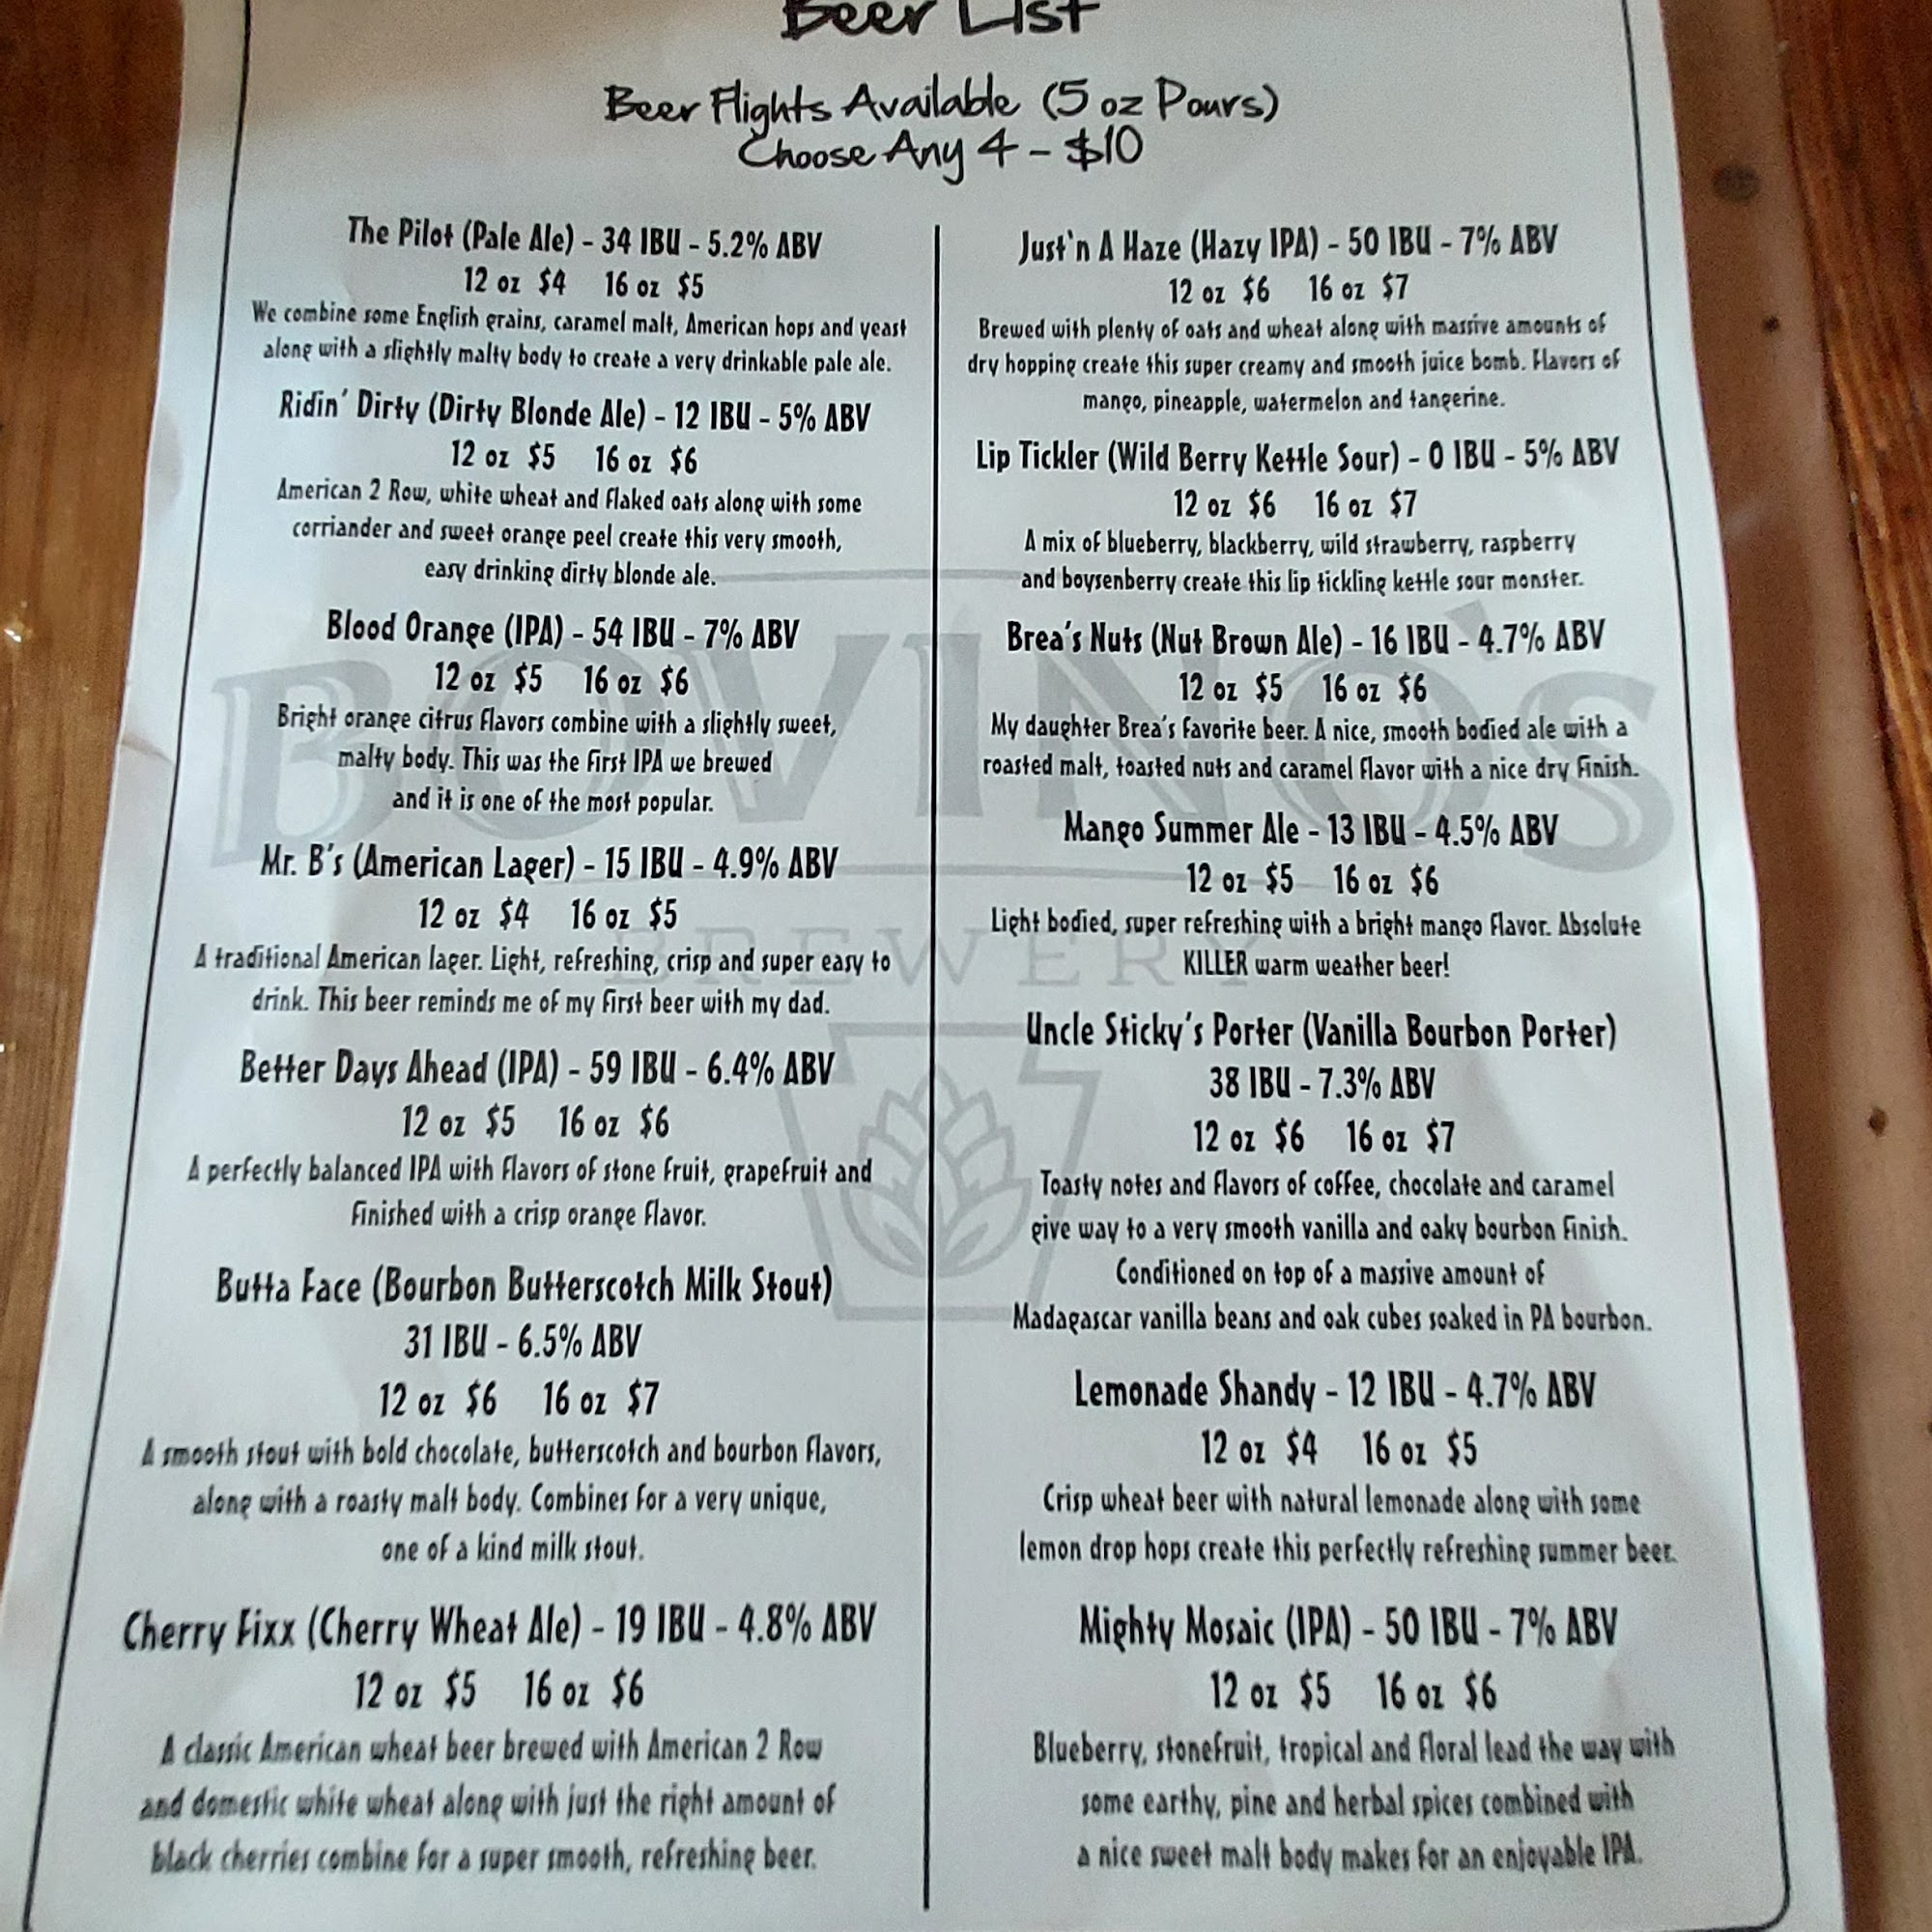 Beer List
Beer Flights Available (5 oz Pours)
Choose Any 4 - $10
The Pilot (Pale Ale) - 34 IBU - 5.2% ABV
12 oz $4 16 oz $5
We combine some English grains, caramel malt, American hops and yeast
along with a slightly malty body to create a very drinkable pale ale.
Ridin' Dirty (Dirty Blonde Ale) - 12 IBU - 5% ABV
12 oz $5 16 oz $6
American 2 Row, white wheat and flaked oats along with some
corriander and sweet orange peel create this very smooth,
easy drinking dirty blonde ale.
Blood Orange (IPA) - 54 IBU - 7% ABV
12 oz $5 16 oz $6
Bright orange citrus flavors combine with a slightly sweet,
malty body. This was the first IPA we brewed
and it is one of the most popular.
Mr. B's (American Lager) - 15 IBU - 4.9% ABV
12 oz $4 16 oz $5
A traditional American lager. Light, refreshing, crisp and super easy to
drink. This beer reminds me of my first beer with my dad.
Better Days Ahead (IPA) - 59 IBU - 6.4% ABV
12 oz $5 16 oz $6
A perfectly balanced IPA with flavors of stone fruit, grapefruit and
finished with a crisp orange flavor.
Butta Face (Bourbon Butterscotch Milk Stout)
31 IBU - 6.5% ABV
12 oz $6 16 oz $7
A smooth stout with bold chocolate, butterscotch and bourbon flavors,
along with a roasty malt body. Combines for a very unique,
one of a kind milk stout.
Cherry Fixx (Cherry Wheat Ale) - 19 IBU - 4.8% ABV
12 oz $5 16 oz $6
A classic American wheat beer brewed with American 2 Row
and domestic white wheat along with just the right amount of
black cherries combine for a super smooth, refreshing beer.
Just'n A Haze (Hazy IPA) - 50 IBU - 7% ABV
12 oz $6 16 oz $7
Brewed with plenty of oats and wheat along with massive amounts of
dry hopping create this super creamy and smooth juice bomb. Flavors of
mango, pineapple, watermelon and tangerine.
Lip Tickler (Wild Berry Kettle Sour) - 0 IBU - 5% ABV
12 oz $6 16 oz $7
A mix of blueberry, blackberry, wild strawberry, raspberry
and boysenberry create this lip tickling kettle sour monster.
Brea's Nuts (Nut Brown Ale) - 16 IBU - 4.7% ABV
12 oz $5 16 oz $6
My daughter Brea's favorite beer. A nice, smooth bodied ale with a
roasted malt, toasted nuts and caramel flavor with a nice dry finish.
Mango Summer Ale - 13 IBU - 4.5% ABV
12 oz $5 16 oz $6
Light bodied, super refreshing with a bright mango flavor. Absolute
KILLER warm weather beer!
Uncle Sticky's Porter (Vanilla Bourbon Porter)
38 IBU - 7.3% ABV
12 oz $6 16 oz $7
Toasty notes and flavors of coffee, chocolate and caramel
give way to a very smooth vanilla and oaky bourbon finish.
Conditioned on top of a massive amount of
Madagascar vanilla beans and oak cubes soaked in PA bourbon.
Lemonade Shandy - 12 IBU - 4.7% ABV
12 oz $4 16 oz $5
Crisp wheat beer with natural lemonade along with some
lemon drop hops create this perfectly refreshing summer beer.
Mighty Mosaic (IPA) - 50 IBU - 7% ABV
12 oz $5 16 oz $6
Blueberry, stonefruit, tropical and floral lead the way with
some earthy, pine and herbal spices combined with
a nice sweet malt body makes for an enjoyable IPA.
BOVINO'S
BREWERY